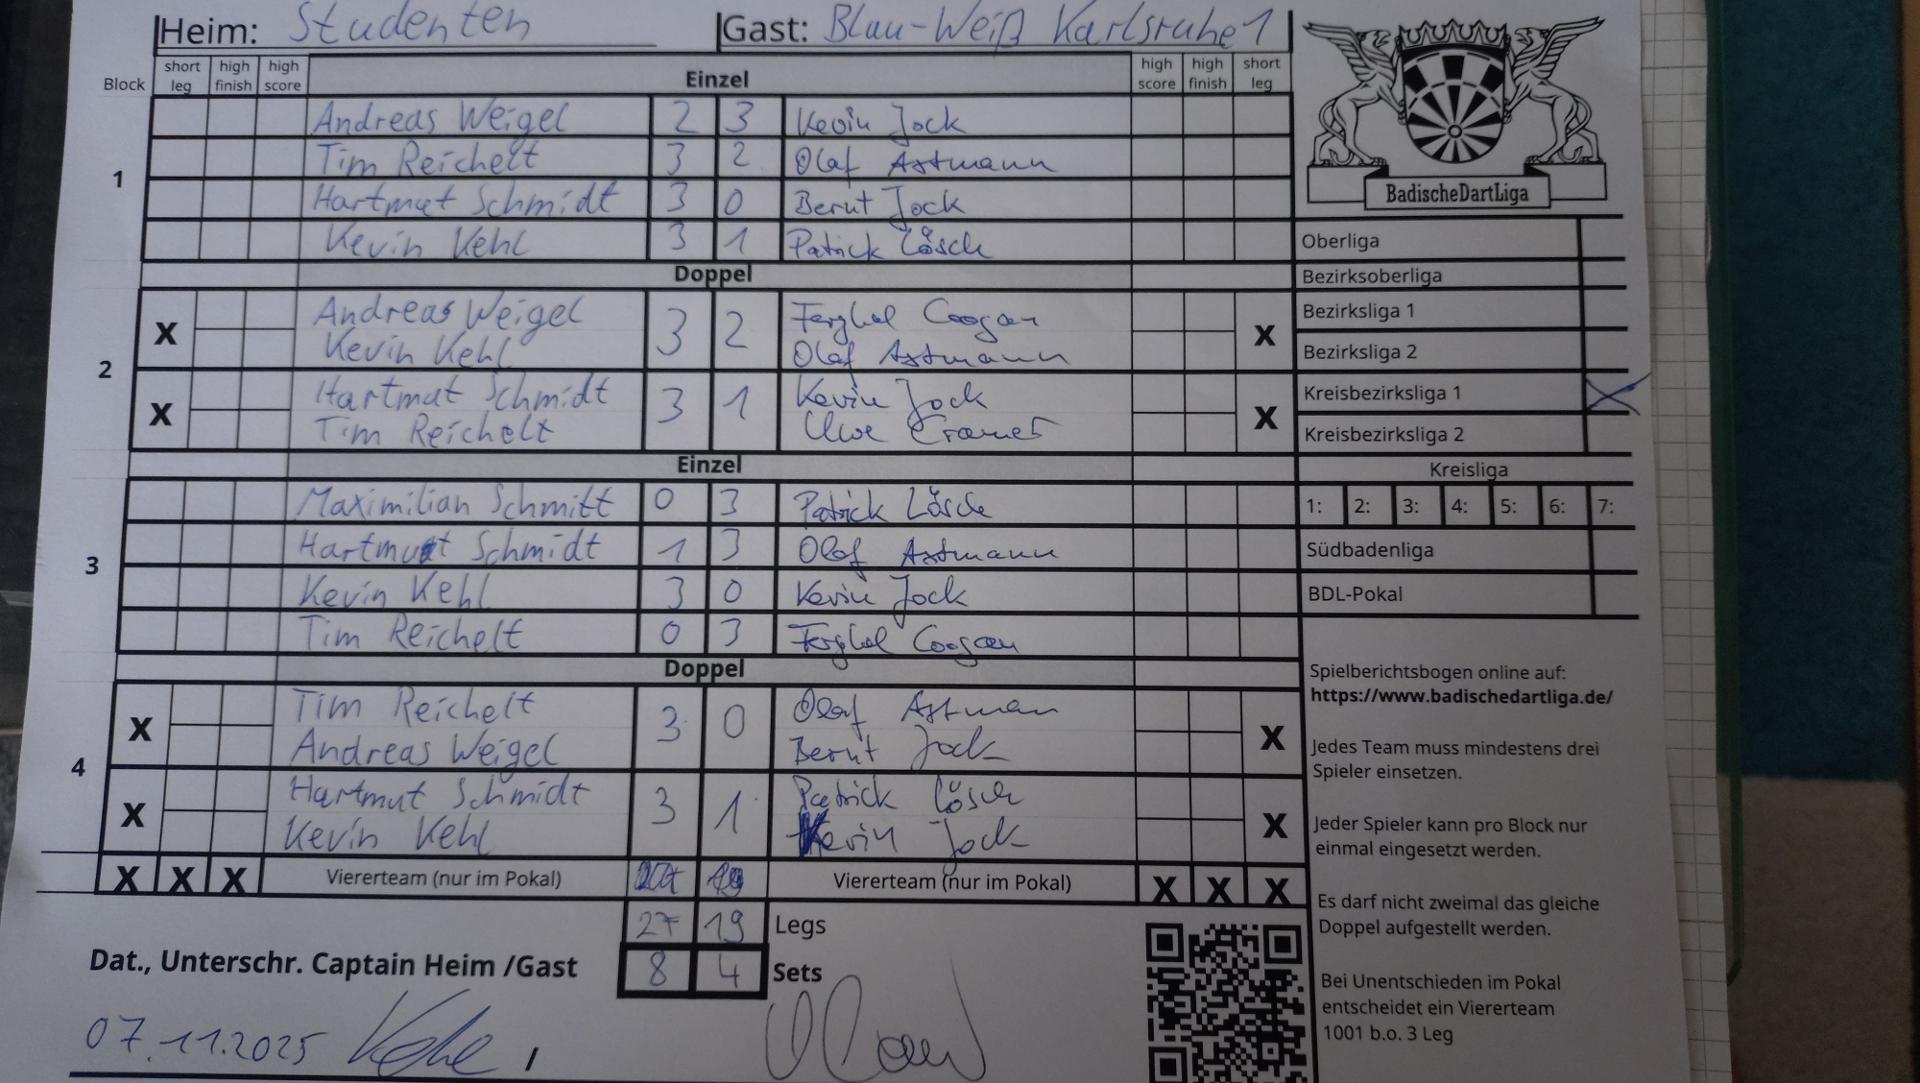 Heim: Studenten Gast: Blau-Weiß Karlsruhe 1
Block short leg high finish high score Einzel high score high finish short leg
1
Andreas Weigel 2 3 Kevin Jock
Tim Reichelt 3 2 Olaf Astmann
Hartmut Schmidt 3 0 Bernt Jock
Kevin Kehl 3 1 Patrick Lösch
Doppel
2
X Andreas Weigel 3 2 Ferghal Coogan X
Kevin Kehl Olaf Astmann
X Hartmut Schmidt 3 1 Kevin Jock X
Tim Reichelt Uwe Cramer
Einzel
3
Maximilian Schmitt 0 3 Patrick Lösch
Hartmut Schmidt 1 3 Olaf Astmann
Kevin Kehl 3 0 Kevin Jock
Tim Reichelt 0 3 Ferghal Coogan
Doppel
4
X Tim Reichelt 3 0 Olaf Astman X
Andreas Weigel Bernt Jock
X Hartmut Schmidt 3 1 Patrick Lösch X
Kevin Kehl Kevin Jock
X X X Viererteam (nur im Pokal) Viererteam (nur im Pokal) X X X
27 19 Legs
8 4 Sets
Dat., Unterschr. Captain Heim /Gast
07.11.2025 /
BadischeDartLiga
Oberliga
Bezirksoberliga
Bezirksliga 1
Bezirksliga 2
Kreisbezirksliga 1 X
Kreisbezirksliga 2
Kreisliga
1: 2: 3: 4: 5: 6: 7:
Südbadenliga
BDL-Pokal
Spielberichtsbogen online auf:
https://www.badischedartliga.de/
Jedes Team muss mindestens drei
Spieler einsetzen.
Jeder Spieler kann pro Block nur
einmal eingesetzt werden.
Es darf nicht zweimal das gleiche
Doppel aufgestellt werden.
Bei Unentschieden im Pokal
entscheidet ein Viererteam
1001 b.o. 3 Leg